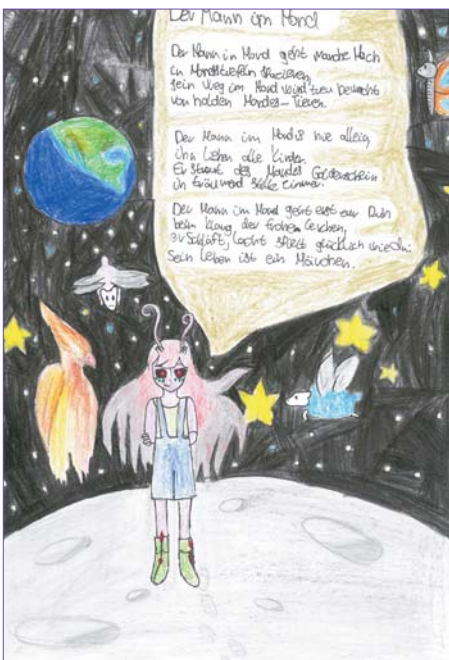 Der Mann im Mond
Der Mann in Mond geht manche Nach
in Mondstiefeln spazieren,
sein Weg im Mond wird treu bewacht
von holden Mondes-Tieren.
Der Mann im Mond is nie allein
ihn lieben alle Kinder.
Er streut des Mondes Goldenschein
in
Der Mann im Mond geht erst zur Ruh
beim Klang, der frohen Lerchen,
Er schläft, lacht glücklich
Sein Leben ist ein Märchen.